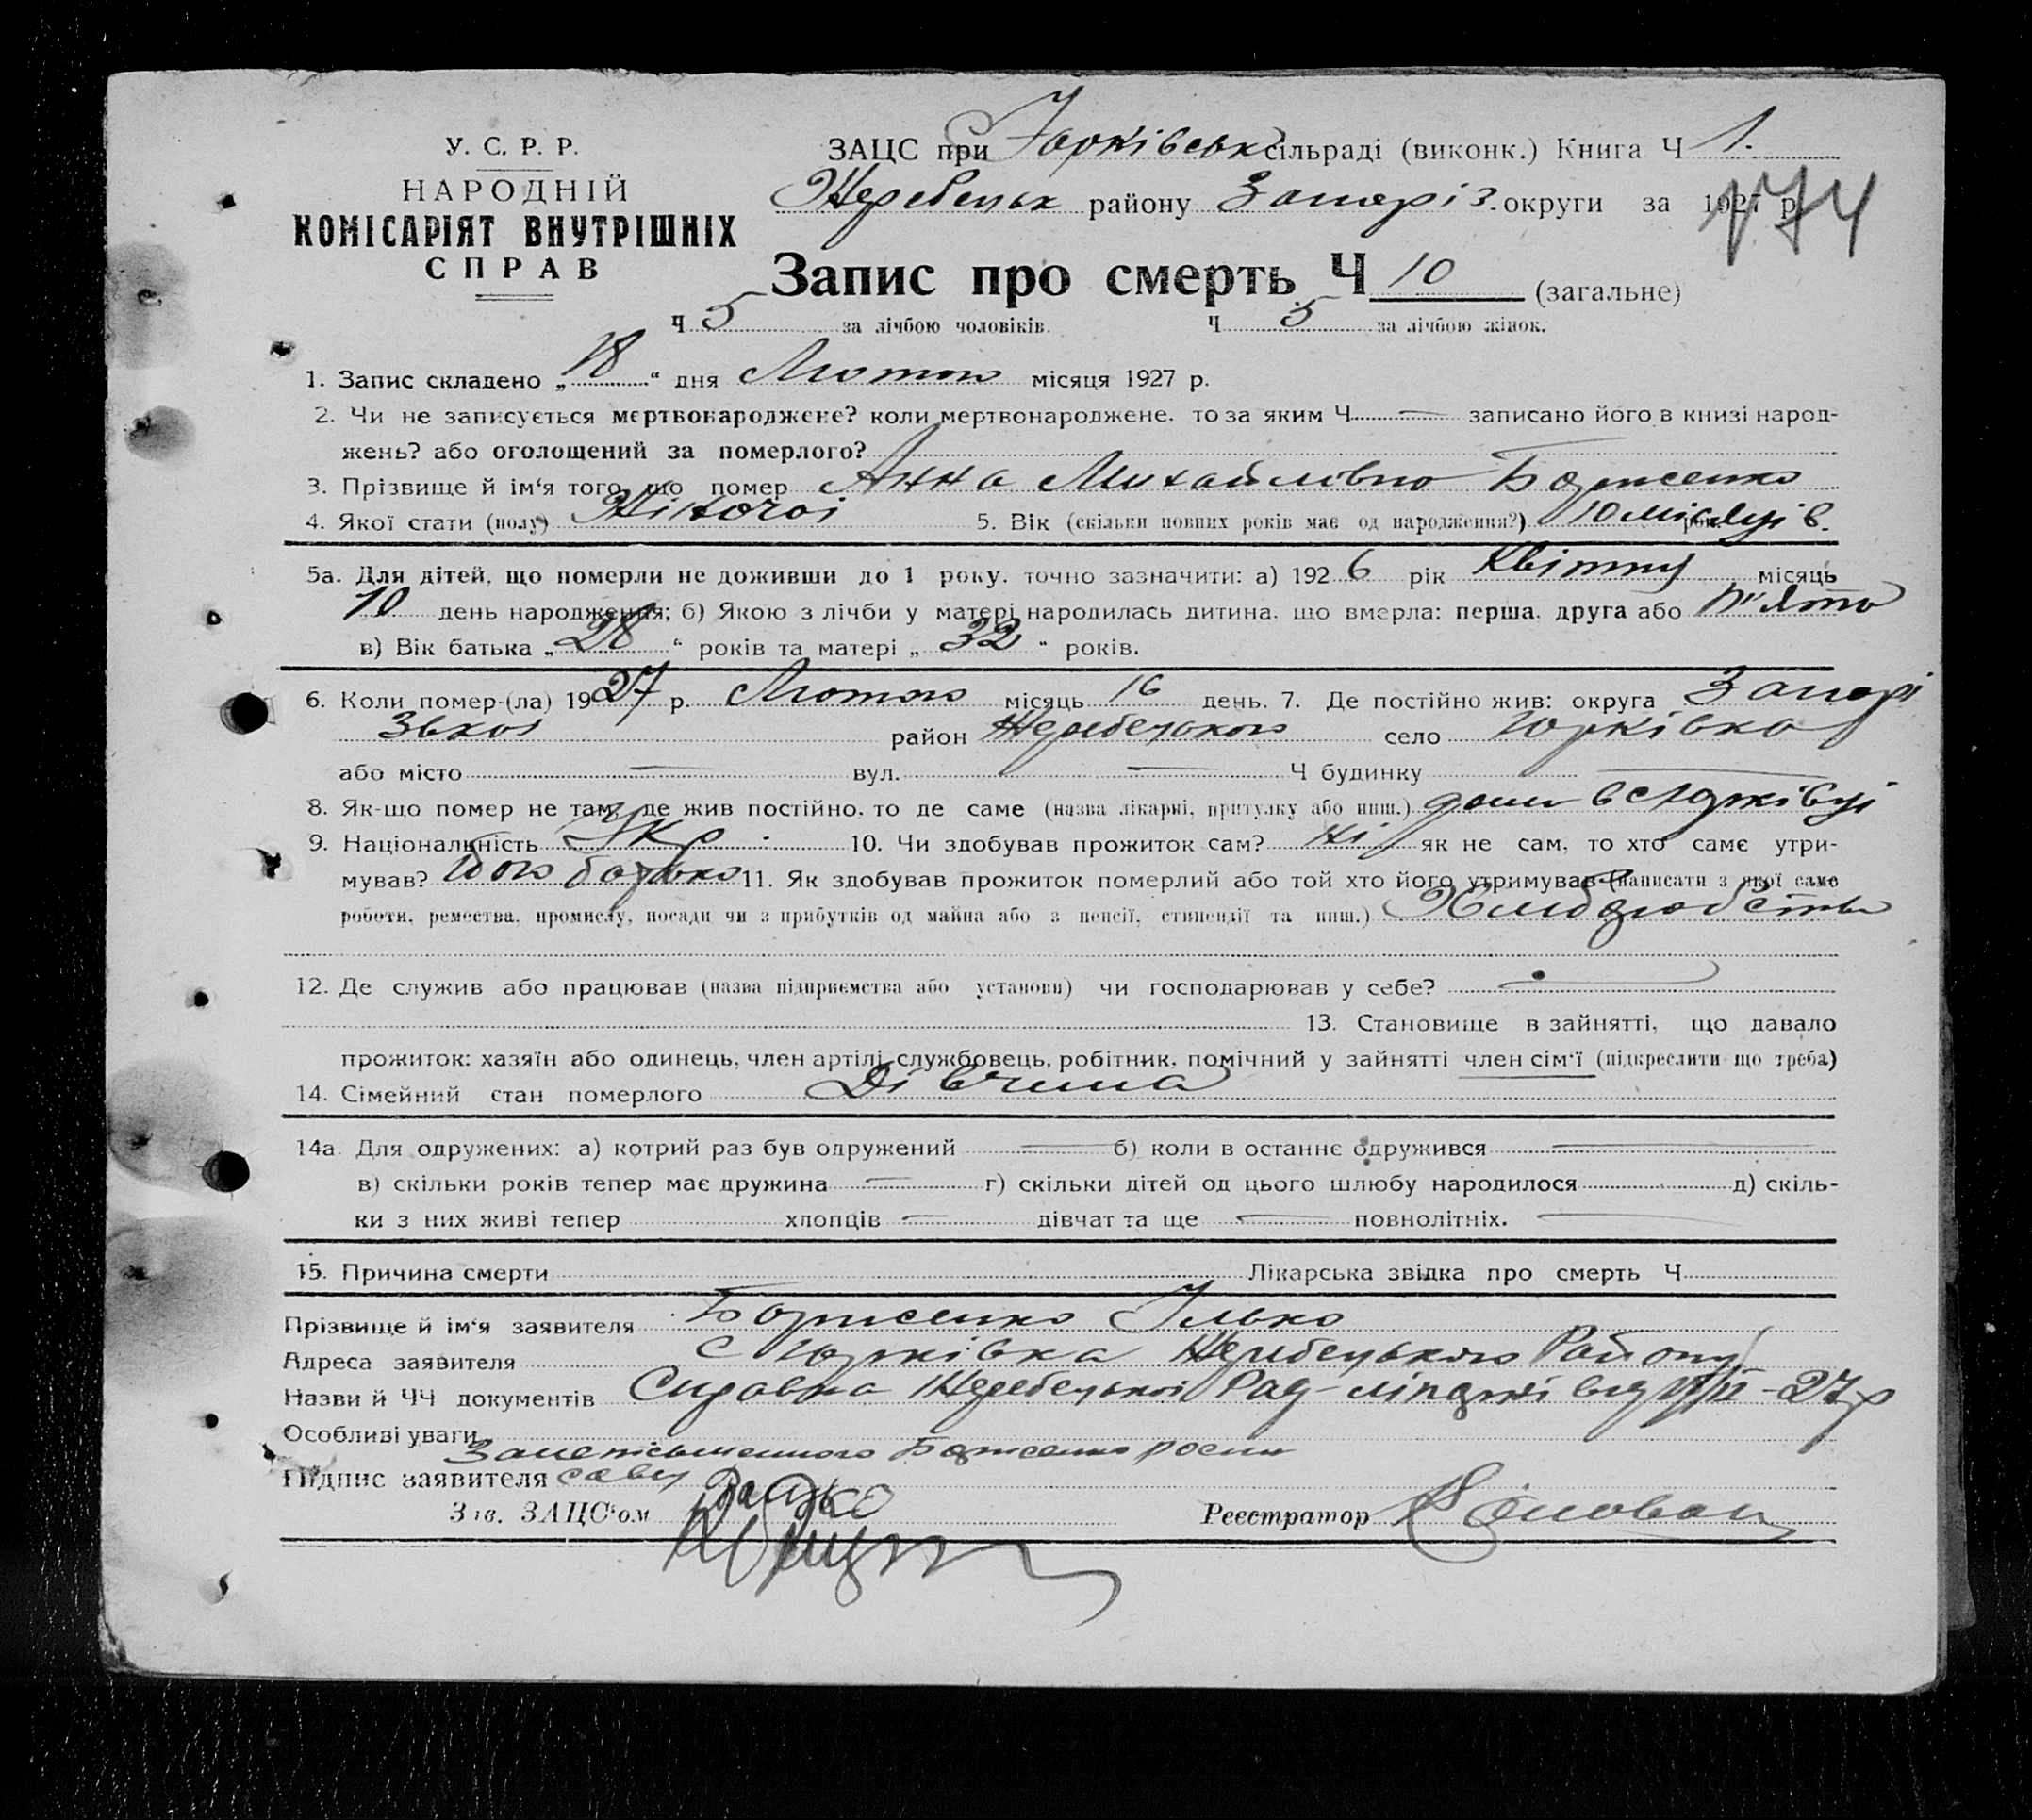 У. С. Р. Р.
НАРОДНІЙ
КОМІСАРІЯТ ВНУТРІШНІХ
СПРАВ
ЗАЦС при Юрківськ сільраді (виконк.) Книга Ч 1.
Жеребецьк району Запоріз. округи за 1927 р.
174
Запис про смерть Ч 10 (загальне)
Ч 5 за лічбою чоловіків. Ч 5 за лічбою жінок.
1. Запис складено „18“ дня Лютого місяця 1927 р.
2. Чи не записується мертвонароджене? коли мертвонароджене. то за яким Ч — записано його в книзі народ-
жень? або оголощений за померлого?
3. Прізвище й ім‘я того, що помер Анна Михайлівна Борисенко
4. Якої стати (полу) Жіночої 5. Вік (скільки повних років має од народження?) 10 місяців.
5а. Для дітей, що померли не доживши до 1 року. точно зазначити: а) 1926 рік Квітня місяць
10 день народження; б) Якою з лічби у матері народилась дитина. що вмерла: перша. друга або п'ята
в) Вік батька „28“ років та матері „32“ років.
6. Коли помер-(ла) 1927 р. Лютого місяць 16 день. 7. Де постійно жив: округа Запорі
зька район Жеребецького село Юрківка
або місто — вул. — Ч будинку —
8. Як-що помер не там, де жив постійно, то де саме (назва лікарні, притулку або инш.) дома в с Юрківці
9. Національність Укр. 10. Чи здобував прожиток сам? Ні як не сам, то хто саме утри-
мував? його батько 11. Як здобував прожиток померлий або той хто його утримував (написати з якої саме
роботи, ремества, промислу, посади чи з прибутків од майна або з пенсії, стипендії та инш.) Хліборобство
12. Де служив або працював (назва підприємства або установи) чи господарював у себе? —
13. Становище в зайнятті, що давало
прожиток: хазяїн або одинець, член артілі, службовець, робітник, помічний у зайнятті член сім‘ї (підкреслити що треба)
14. Сімейний стан померлого Дівчина
14а. Для одружених: а) котрий раз був одружений — б) коли в останнє одружився —
в) скільки років тепер має дружина — г) скільки дітей од цього шлюбу народилося д) скіль-
ки з них живі тепер хлопців — дівчат та ще — повнолітніх. —
15. Причина смерти Лікарська звідка про смерть Ч
Прізвище й ім‘я заявителя Борисенко Ілько
Адреса заявителя с Юрківка Жеребецького Району
Назви й ЧЧ документів Справка Жеребецької Рад-
Особливі уваги
За неписьменного Борисенко росп
Підпис заявителя
Зав. ЗАЦС‘ом Реєстратор